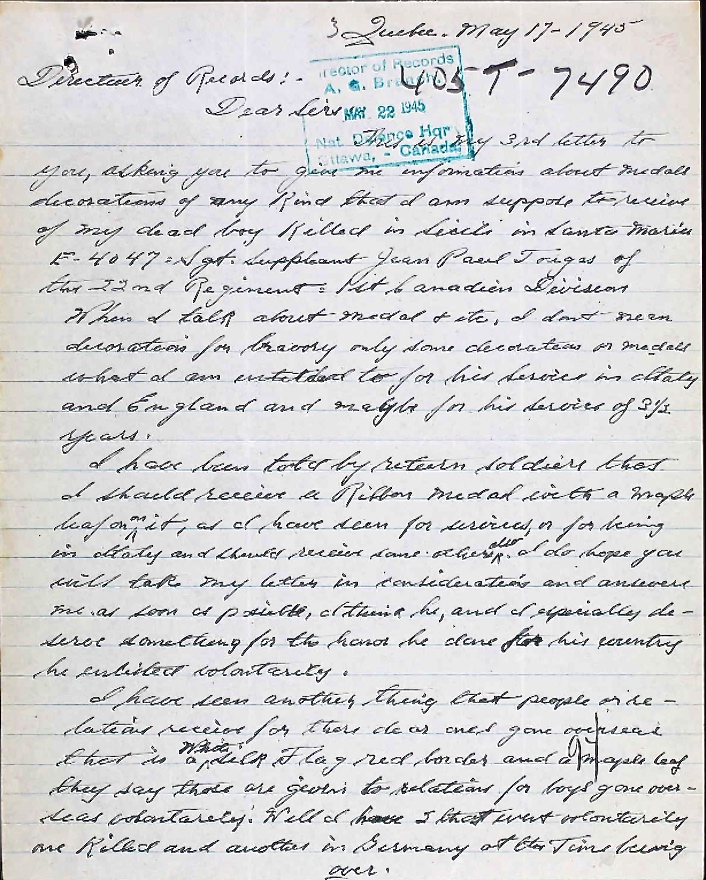 3 Quebec. May 17-1945
Directeur of Records:-
405-T-7490
Director of Records
A. G. Branch.
MAY 22 1945
Nat. Defence Hqr
Ottawa, - Canada
Dear Sirs
This is my 3rd letter to
you, asking you to give me information about medals
decorations of any Kind that I am suppose to receive
of my dead boy Killed in Sicili in Santa Maria
E-4047 = Sgt. Suppleant Jean Paul Tougas of
the 22nd Regiment = 1st Canadian Division
When I talk about medal & etc, I dont mean
decoration for bravory only some decorations or medals
what I am entitled to for his service in Italy
and England and maybe for his service of 3½
years.
I have been told by return soldiers that
I should receive a Ribbon medal with a maple
leaf on it, as I have seen for services, or for being
in Italy and should receive some others also. I do hope you
will take my letter in consideration and answere
me as soon as posible, I think he, and I especially de-
serve something for the honor he done for his country
he enlisted volontarily.
I have seen another thing that people or re-
lations receive for there dear ones gone overseas
that is a White silk Flag red border and a maple leaf
they say those are given to relations for boys gone over-
seas volontarely. Well I have 2 that went volontarily
one Killed and another in Germany at the Time being
over.